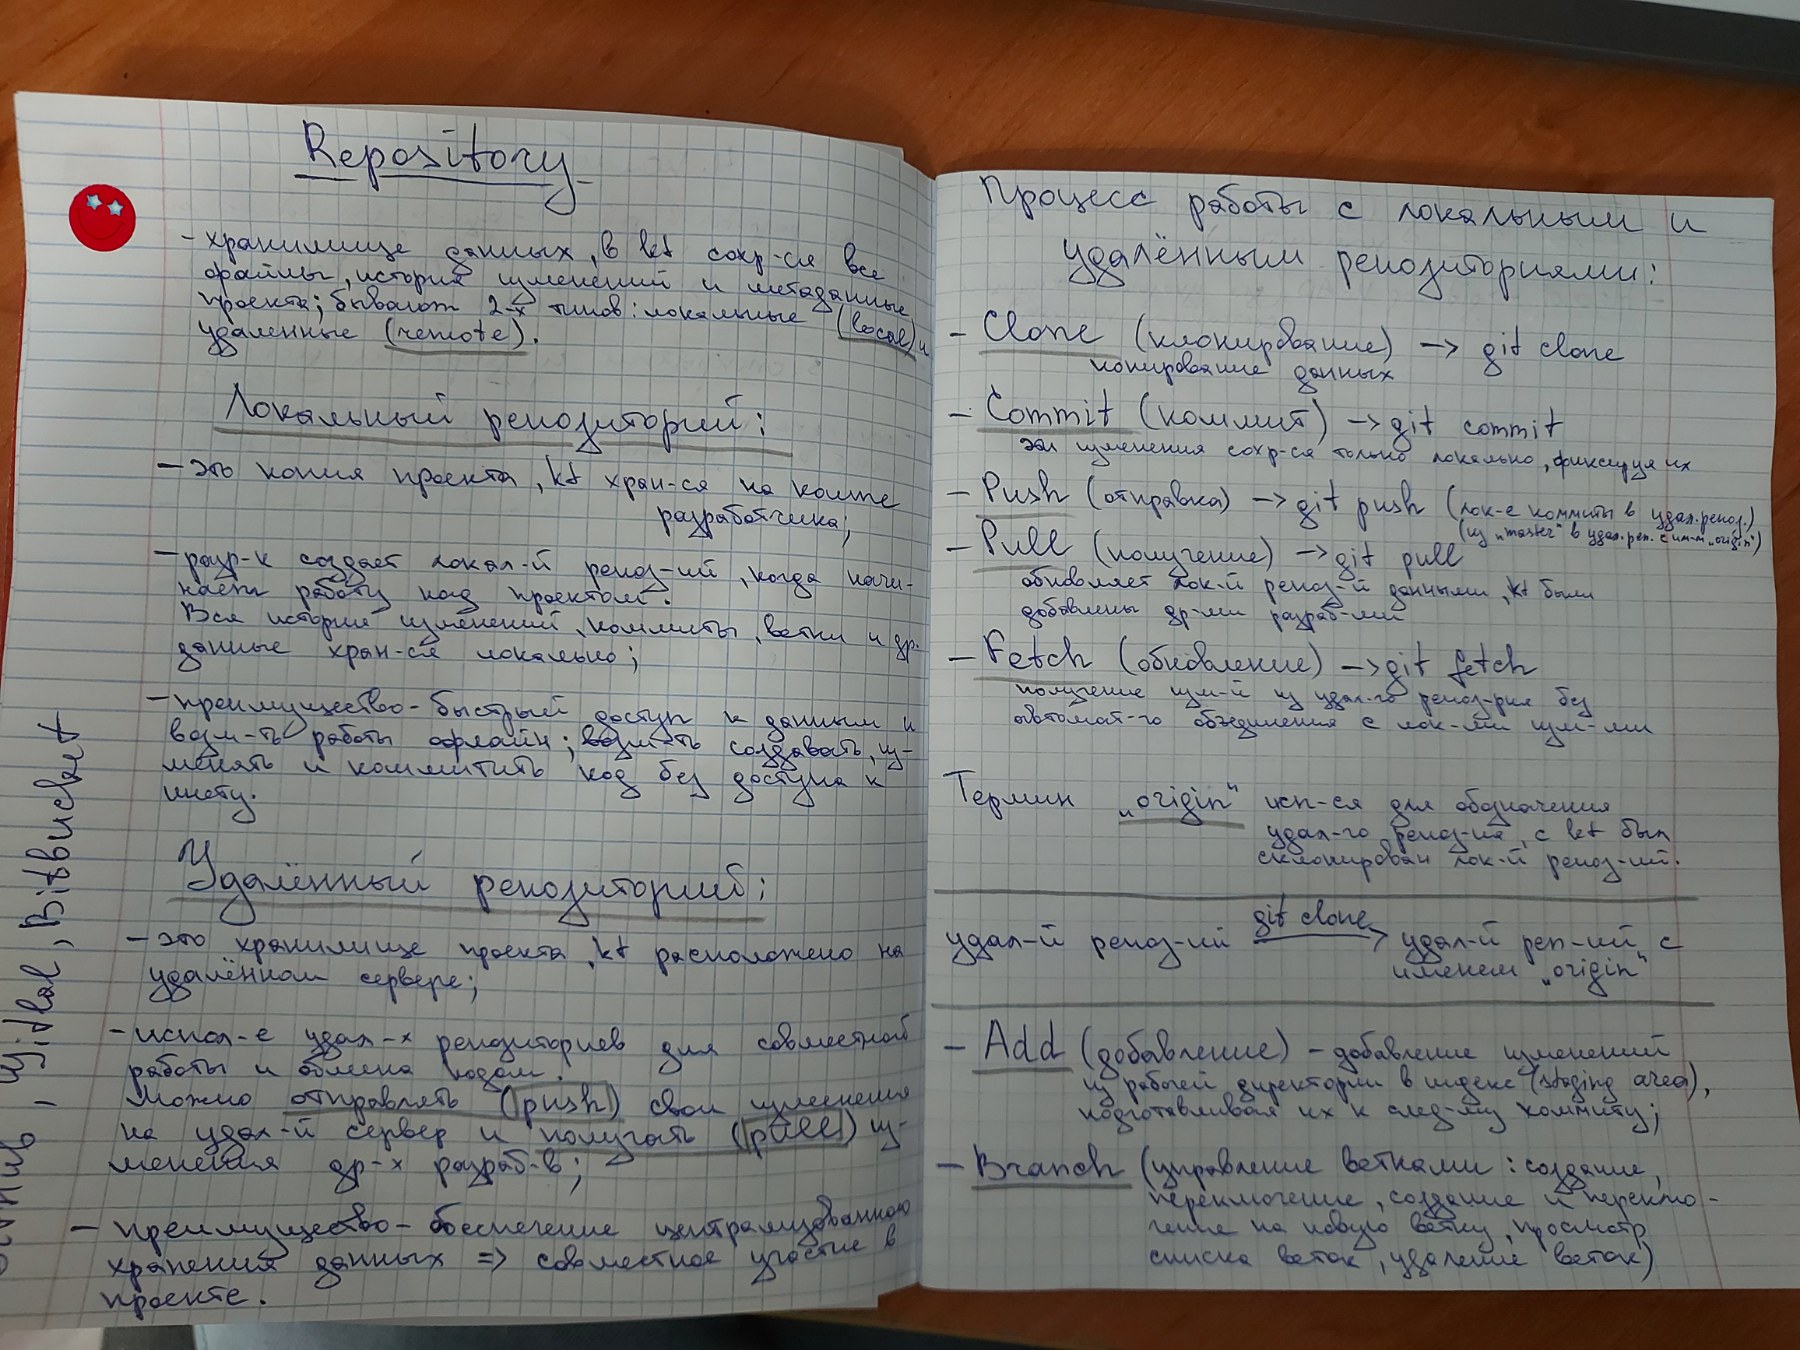 Repository
- хранилище данных, в kt сохр-ся все
файлы, история изменений и метаданные
проекта; бывают 2-х типов: локальные (local) и
удаленные (remote).
Локальный репозиторий:
- это копия проекта, kt хран-ся на компе
разработчика;
- разр-к создает локал-й репоз-ий, когда начи-
нает работу над проектом.
Вся история изменений, коммиты, ветки и др.
данные хран-ся локально;
- преимущество - быстрый доступ к данным и
возм-ть работы офлайн; возм-ть создавать, из-
менять и коммитить код без доступа к
инету.
Удалённый репозиторий:
- это хранилище проекта, kt расположено на
удалённом сервере;
- испол-е удал-х репозиториев для совместной
работы и обмена кодом.
Можно отправлять (push) свои изменения
на удал-й сервер и получать (pull) из-
менения др-х разраб-в;
- преимущество - обеспечение централизованного
хранения данных => совместное участие в
проекте.
, Bitbucket
Процесс работы с локальным и
удалённым репозиториями:
- Clone (клонирование) -> git clone
копирование данных
- Commit (коммит) -> git commit
эти изменения сохр-ся только локально, фиксируя их
- Push (отправка) -> git push (лок-е коммиты в удал.репоз.)
(из „master" в удал.реп. с им-м „origin")
- Pull (получение) -> git pull
обновляет лок-й репоз-й данными, kt были
добавлены др-ми разраб-ми
- Fetch (обновление) -> git fetch
получение изм-й из удал-го репоз-рия без
автомат-го объединения с лок-ми изм-ми
Термин „origin" исп-ся для обозначения
удал-го репоз-ия, с kt был
склонирован лок-й репоз-ий.
git clone
удал-й репоз-ий -> удал-й реп-ий с
именем „origin"
- Add (добавление) - добавление изменений
из рабочей директории в индекс (staging area),
подготавливая их к след-му коммиту;
- Branch (управление ветками: создание,
переключение, создание и переклю-
чение на новую ветку, просмотр
списка веток, удаление веток)